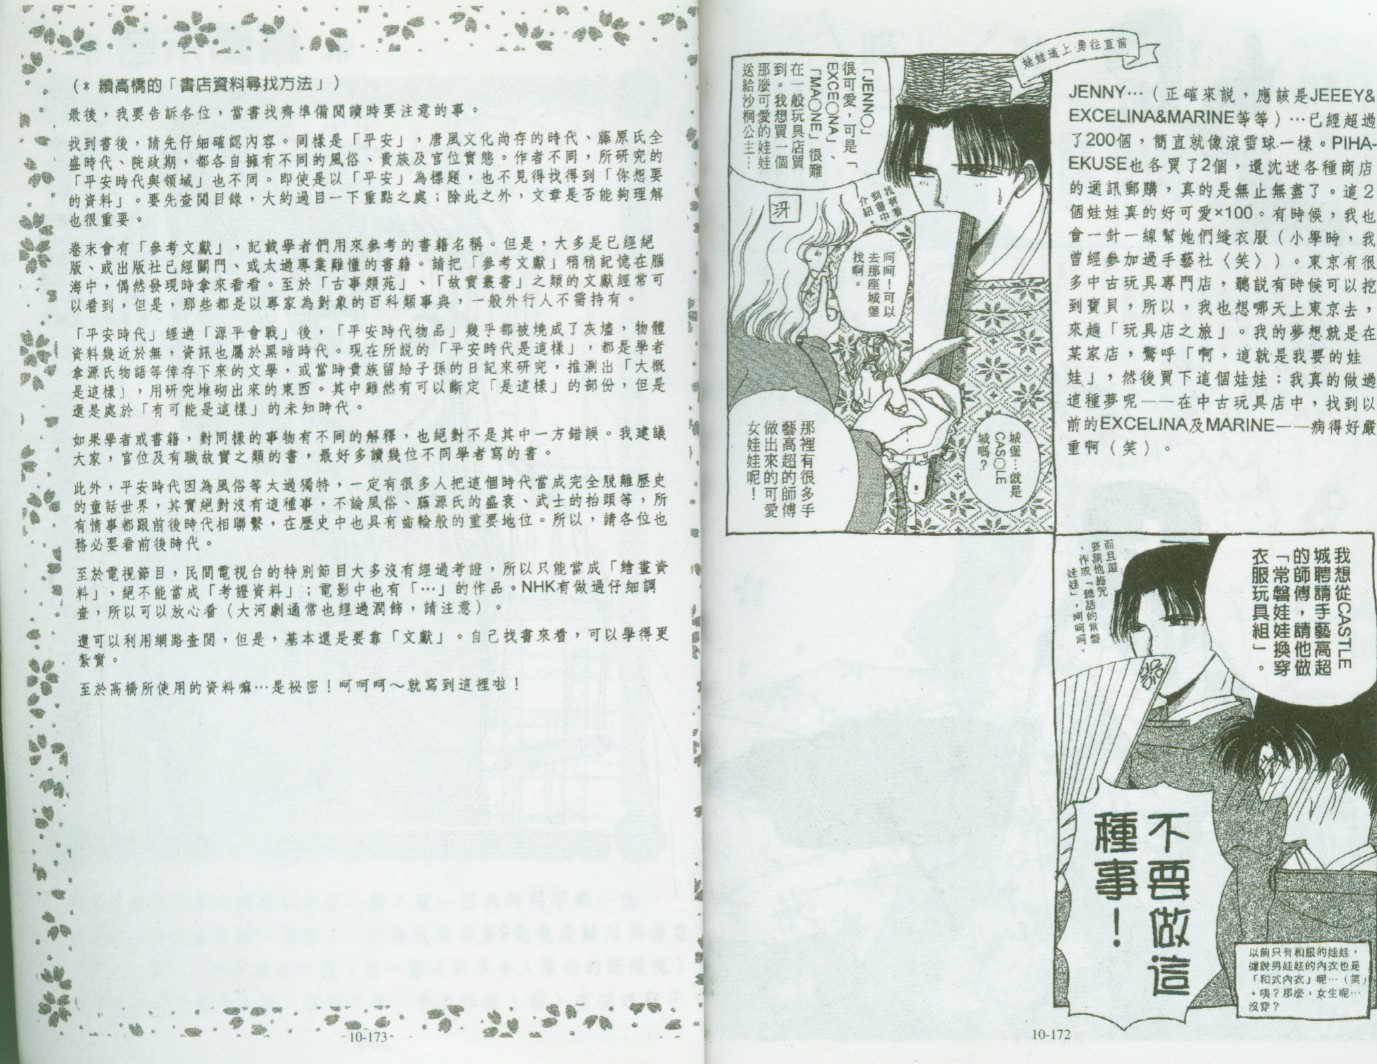 娃娃道上勇往直前
JENNY…(正確來說，應該是JEEEY&
EXCELINA&MARINE等等)…已經超過
了200個，簡直就像滾雪球一樣。PIHA-
EKUSE也各買了2個，還沈迷各種商店
的通訊郵購，真的是無止無盡了。這2
個娃娃真的好可愛×100。有時候，我也
會一針一線幫她們縫衣服(小學時，我
曾經參加過手藝社〈笑〉)。東京有很
多中古玩具專門店，聽說有時候可以挖
到寶貝，所以，我也想哪天上東京去，
來趟「玩具店之旅」。我的夢想就是在
某家店，驚呼「啊，這就是我要的娃
娃」，然後買下這個娃娃；我真的做過
這種夢呢——在中古玩具店中，找到以
前的EXCELINA及MARINE——病得好嚴
重啊(笑)。
「JENNO」
很可愛，可是「
EXCEONA」、
「MAONE」很難
在一般玩具店買
到。我想買一個
那麼可愛的娃娃
送給沙桐公主…
冴
呵呵！可以
去那座城堡
找啊。
城堡…就是
CASOLE
城嗎？
那裡有很多手
藝高超的師傅
做出來的可愛
女娃娃呢！
我想從CASTLE
城聘請手藝高超
的師傅，請他做
「常磐娃娃換穿
衣服玩具組」。
而且還
要請他施咒
，作成「聽話的常磐
娃娃」，呵呵呵。
不要做這
種事！
以前只有和服的娃娃，
據說男娃娃的內衣也是
「和式內衣」呢…(笑)
。咦？那麼，女生呢…
沒穿？
10-172
(＊ 續高橋的「書店資料尋找方法」)
最後，我要告訴各位，當書找齊準備閱讀時要注意的事。
找到書後，請先仔細確認內容。同樣是「平安」，唐風文化尚存的時代、藤原氏全
盛時代、院政期，都各自擁有不同的風俗、貴族及官位實態。作者不同，所研究的
「平安時代與領域」也不同。即使是以「平安」為標題，也不見得找得到「你想要
的資料」。要先查閱目錄，大約過目一下重點之處；除此之外，文章是否能夠理解
也很重要。
卷末會有「參考文獻」，記載學者們用來參考的書籍名稱。但是，大多是已經絕
版、或出版社已經關門、或太過專業難懂的書籍。請把「參考文獻」稍稍記憶在腦
海中，偶然發現時拿來看看。至於「古事類苑」、「故實叢書」之類的文獻經常可
以看到，但是，那些都是以專家為對象的百科類事典，一般外行人不需持有。
「平安時代」經過「源平會戰」後，「平安時代物品」幾乎都被燒成了灰燼，物體
資料幾近於無，資訊也屬於黑暗時代。現在所說的「平安時代是這樣」，都是學者
拿源氏物語等倖存下來的文學，或當時貴族留給子孫的日記來研究，推測出「大概
是這樣」，用研究堆砌出來的東西。其中雖然有可以斷定「是這樣」的部份，但是
還是處於「有可能是這樣」的未知時代。
如果學者或書籍，對同樣的事物有不同的解釋，也絕對不是其中一方錯誤。我建議
大家，官位及有職故實之類的書，最好多讀幾位不同學者寫的書。
此外，平安時代因為風俗等太過獨特，一定有很多人把這個時代當成完全脫離歷史
的童話世界，其實絕對沒有這種事，不論風俗、藤源氏的盛衰、武士的抬頭等，所
有情事都跟前後時代相聯繫，在歷史中也具有齒輪般的重要地位。所以，請各位也
務必要看前後時代。
至於電視節目，民間電視台的特別節目大多沒有經過考證，所以只能當成「繪畫資
料」，絕不能當成「考證資料」；電影中也有「…」的作品。NHK有做過仔細調
查，所以可以放心看(大河劇通常也經過潤飾，請注意)。
還可以利用網路查閱，但是，基本還是要靠「文獻」。自己找書來看，可以學得更
紮實。
至於高橋所使用的資料嘛…是祕密！呵呵呵～就寫到這裡啦！
10-173